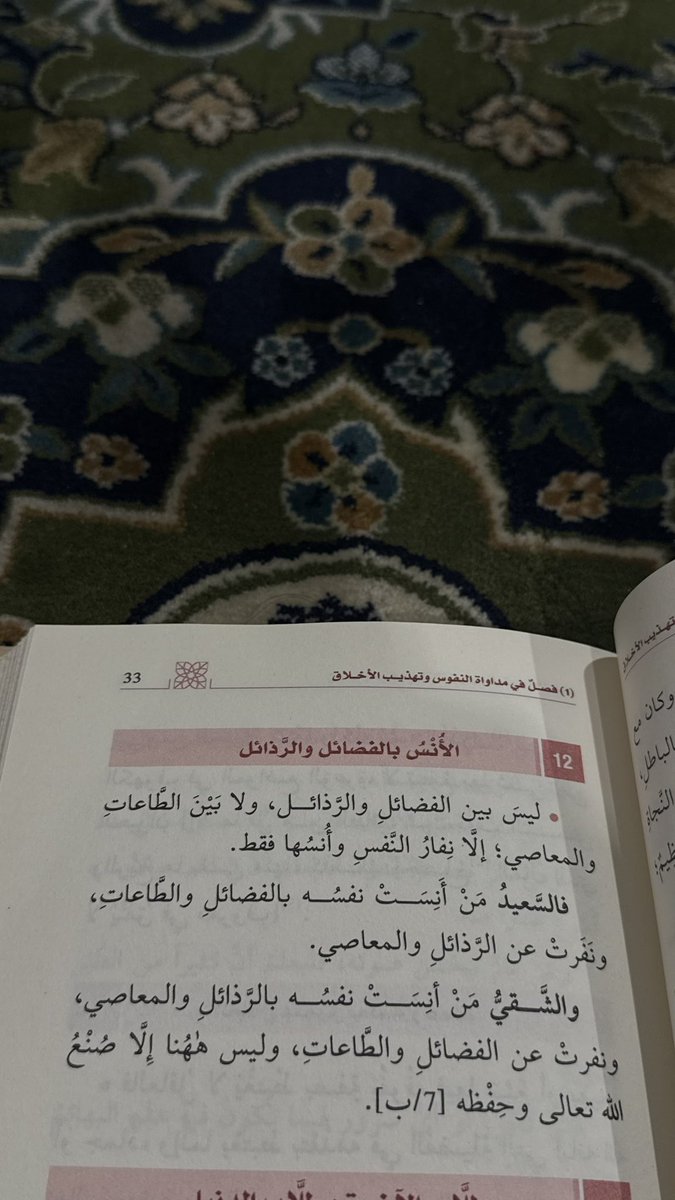 (1) فصلٌ في مداواة النفوس وتهذيب الأخلاق
33
12
الأُنْسُ بالفضائل والرَّذائل
• ليسَ بين الفضائلِ والرَّذائــلِ، ولا بَيْنَ الطَّاعاتِ
والمعاصي؛ إلَّا نِفارُ النَّفسِ وأُنسُها فقط.
فالسَّعيدُ مَنْ أَنِسَــتْ نفسُــه بالفضائلِ والطَّاعاتِ،
ونَفَرتْ عن الرَّذائلِ والمعاصي.
والشَّــقيُّ مَنْ أنِسَــتْ نفسُــه بالرَّذائلِ والمعاصي،
ونفرتْ عن الفضائلِ والطَّاعاتِ، وليس هٰهُنا إلَّا صُنْعُ
الله تعالى وحِفْظه [7/ب].
وكان مع
بالباطلِ،
النَّجاةِ